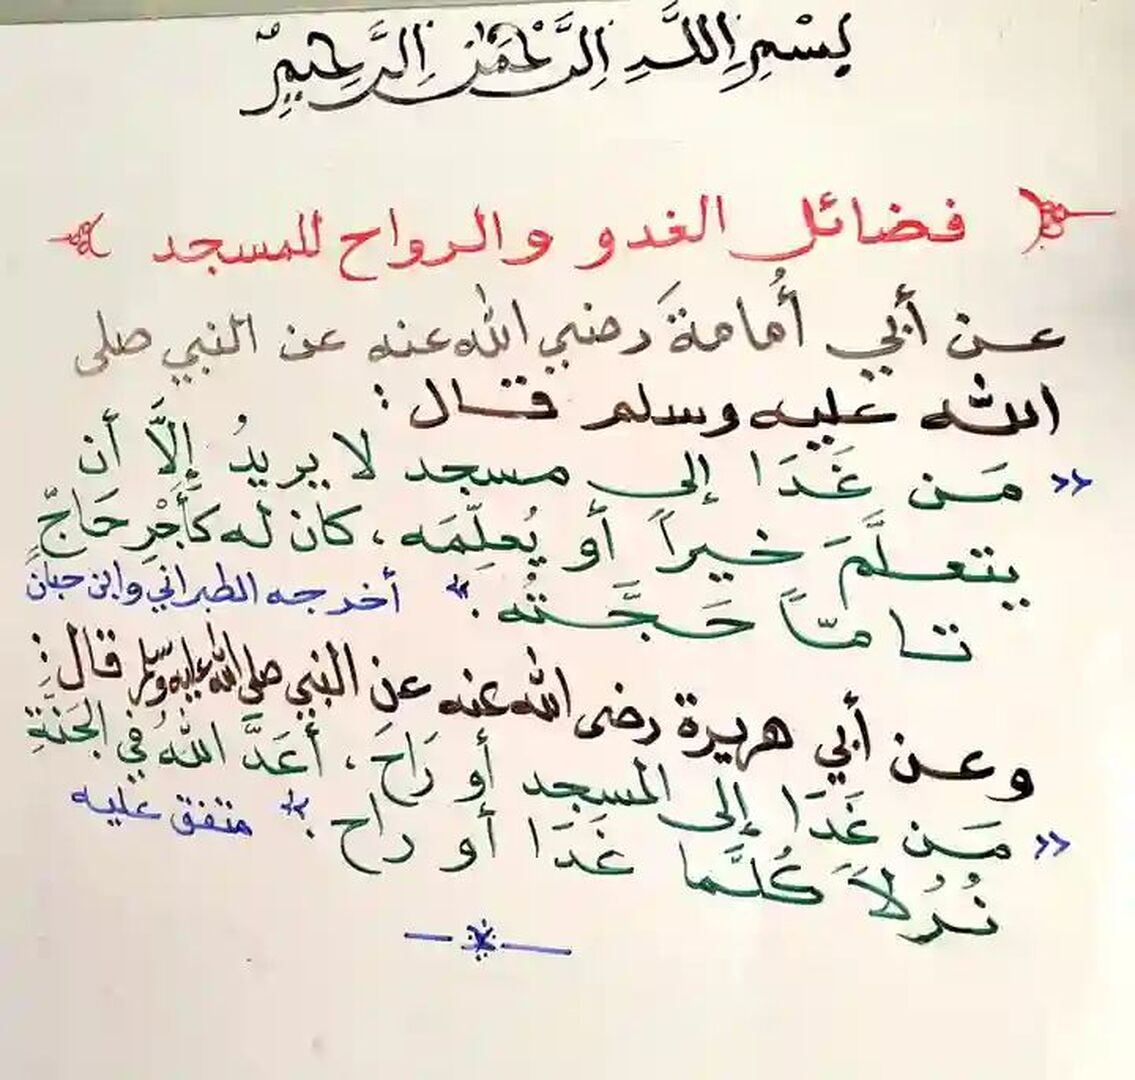 بِسْمِ اللَّهِ الرَّحْمَٰنِ الرَّحِيمِ
﴿ فضائل الغدو والرواح للمسجد ﴾
عن أبي أُمامةَ رضي الله عنه عن النبي صلى
الله عليه وسلم قال :
« مَن غَدَا إلى مسجد لا يريدُ إلَّا أن
يتعلَّمَ خيراً أو يُعلِّمَه ، كان له كَأَجْرِ حَاجٍّ
تامّاً حَجَّتُه . » أخرجه الطبراني وابن حبان
وعن أبي هريرة رضى الله عنه عن النبي صلى الله عليه وسلم قال :
« مَن غَدَا إلى المسجد أو رَاحَ ، أَعَدَّ اللهُ في الجَنَّةِ
نُزُلاً كُلَّما غَدَا أو راح . » متفق عليه